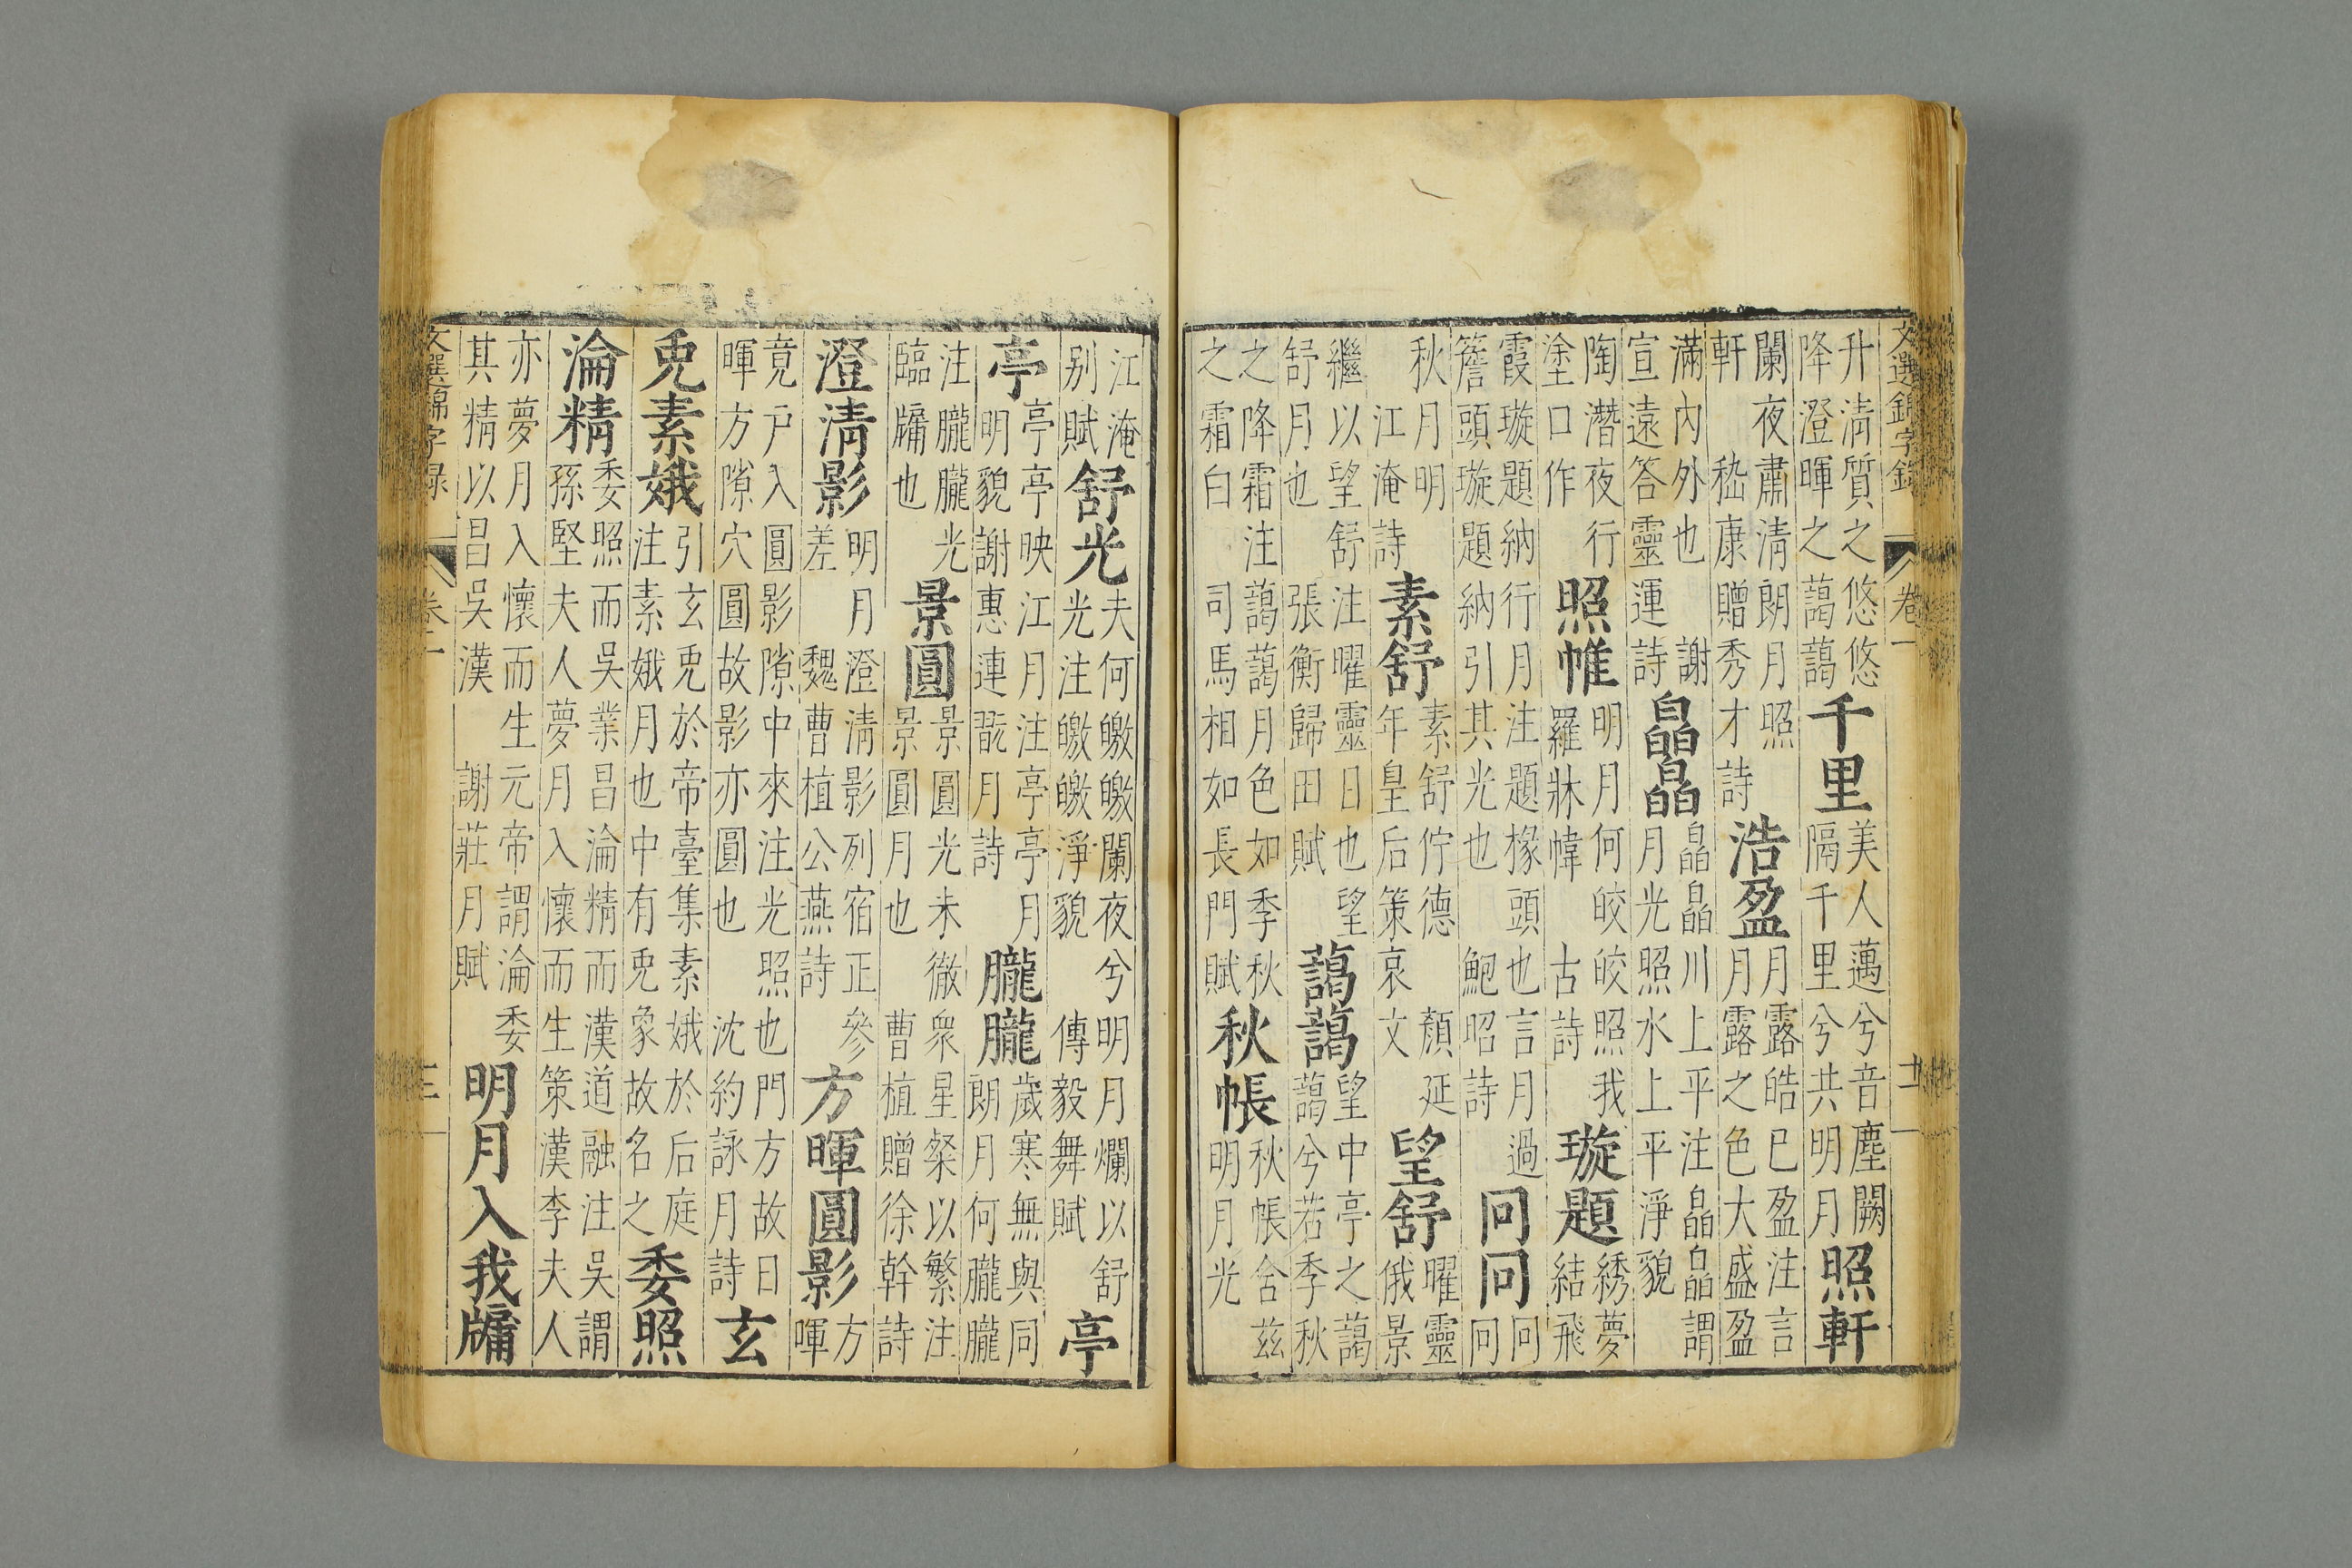 文選錦字錄 卷一 十一
升清質之悠悠
降澄暉之藹藹
千里
美人邁兮音塵闕
隔千里兮共明月
照軒
闌夜肅清朗月照
軒 嵇康贈秀才詩
浩盈
月露皓已盈注言
月露之色大盛盈
滿內外也 謝
宣遠答靈運詩
皛皛
皛皛川上平注皛皛謂
月光照水上平淨貌
陶潛夜行
塗口作
照帷
明月何皎皎照我
羅牀幃 古詩
璇題
綉夢
結飛
霞璇題納行月注題椽頭也言月過
簷頭璇題納引其光也 鮑昭詩
冏冏
冏
冏
秋月明
江淹詩
素舒
素舒佇德 顏延
年皇后策哀文
望舒
曜靈
俄景
繼以望舒注曜靈日也望
舒月也 張衡歸田賦
藹藹
望中亭之藹
藹兮若季秋
之降霜注藹藹月色如季秋
之霜白 司馬相如長門賦
秋帳
秋帳含茲
明月光
江淹
别賦
舒光
夫何皦皦闌夜兮明月爛以舒
光注皦皦淨貌 傅毅舞賦
亭
亭
亭亭映江月注亭亭月
明貌謝惠連翫月詩
朧朧
歲寒無與同
朗月何朧朧
注朧朧光
臨牖也
景圓
景圓光未徹衆星粲以繁注
景圓月也 曹植贈徐幹詩
澄清影
明月澄清影列宿正參
差 魏曹植公燕詩
方暉圓影
方
暉
竟戶入圓影隙中來注光照也門方故曰
暉方隙穴圓故影亦圓也 沈約詠月詩
玄
兎素娥
引玄兎於帝臺集素娥於后庭
注素娥月也中有兎象故名之
委照
淪精
委照而吳業昌淪精而漢道融注吳謂
孫堅夫人夢月入懷而生策漢李夫人
亦夢月入懷而生元帝謂淪委
其精以昌吳漢 謝莊月賦
明月入我牖
文選錦字录 卷一